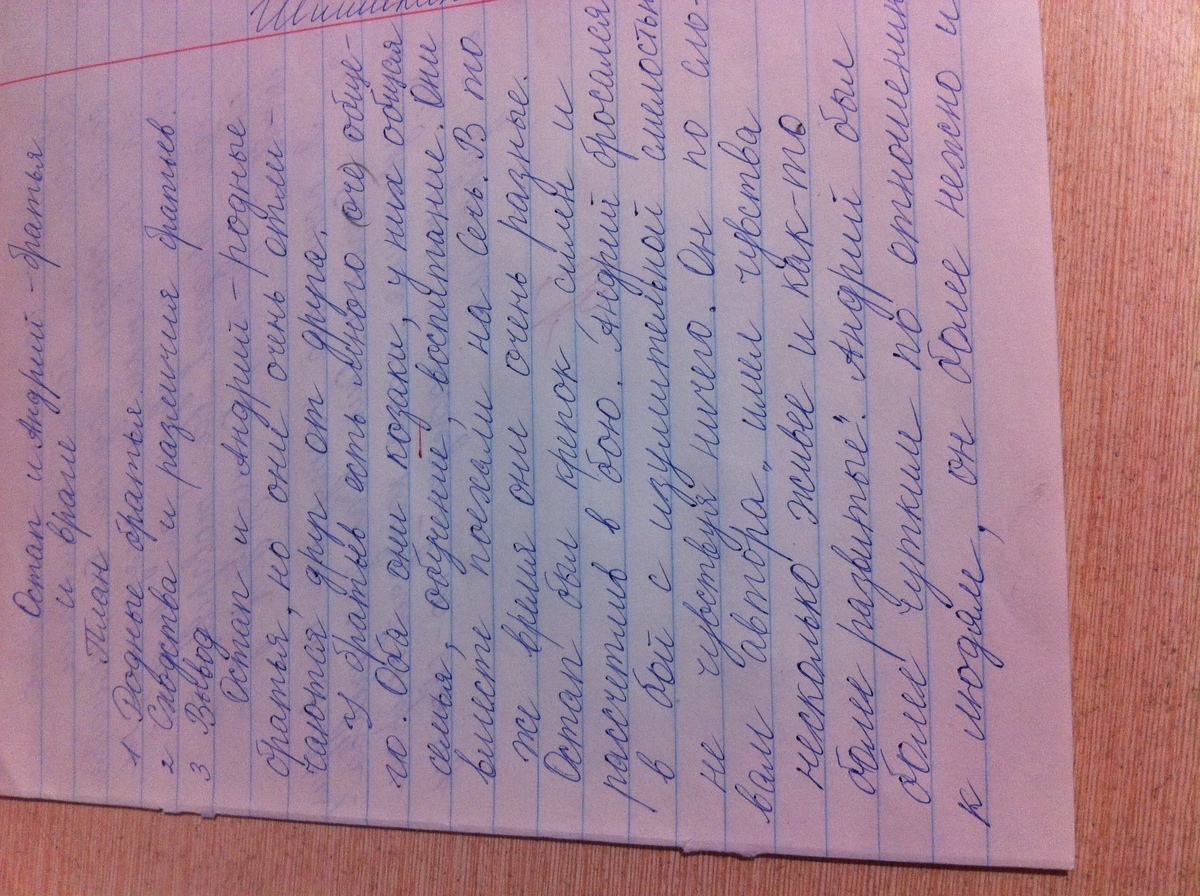 Остап и Андрий - братья
и враги
План
1 Родные братья
2 Сходства и различия братьев.
3 Вывод
Остап и Андрий - родные
братья, но они очень отли-
чаются друг от друга.
У братьев есть много (оче) обще-
го. Оба они козаки, у них общая
семья, обучение, воспитание. Они
вместе поехали на Сечь. В то
же время они очень разные.
Остап был крепок силён и
рассчетлив в бою. Андрий бросался
в бой с изумительной смелостью
не чувствуя ничего. Он по сло-
вам автора „имел чувства
несколько живее и как-то
более развитые". Андрий был
более чутким по отношению
к людям, он более нежно и